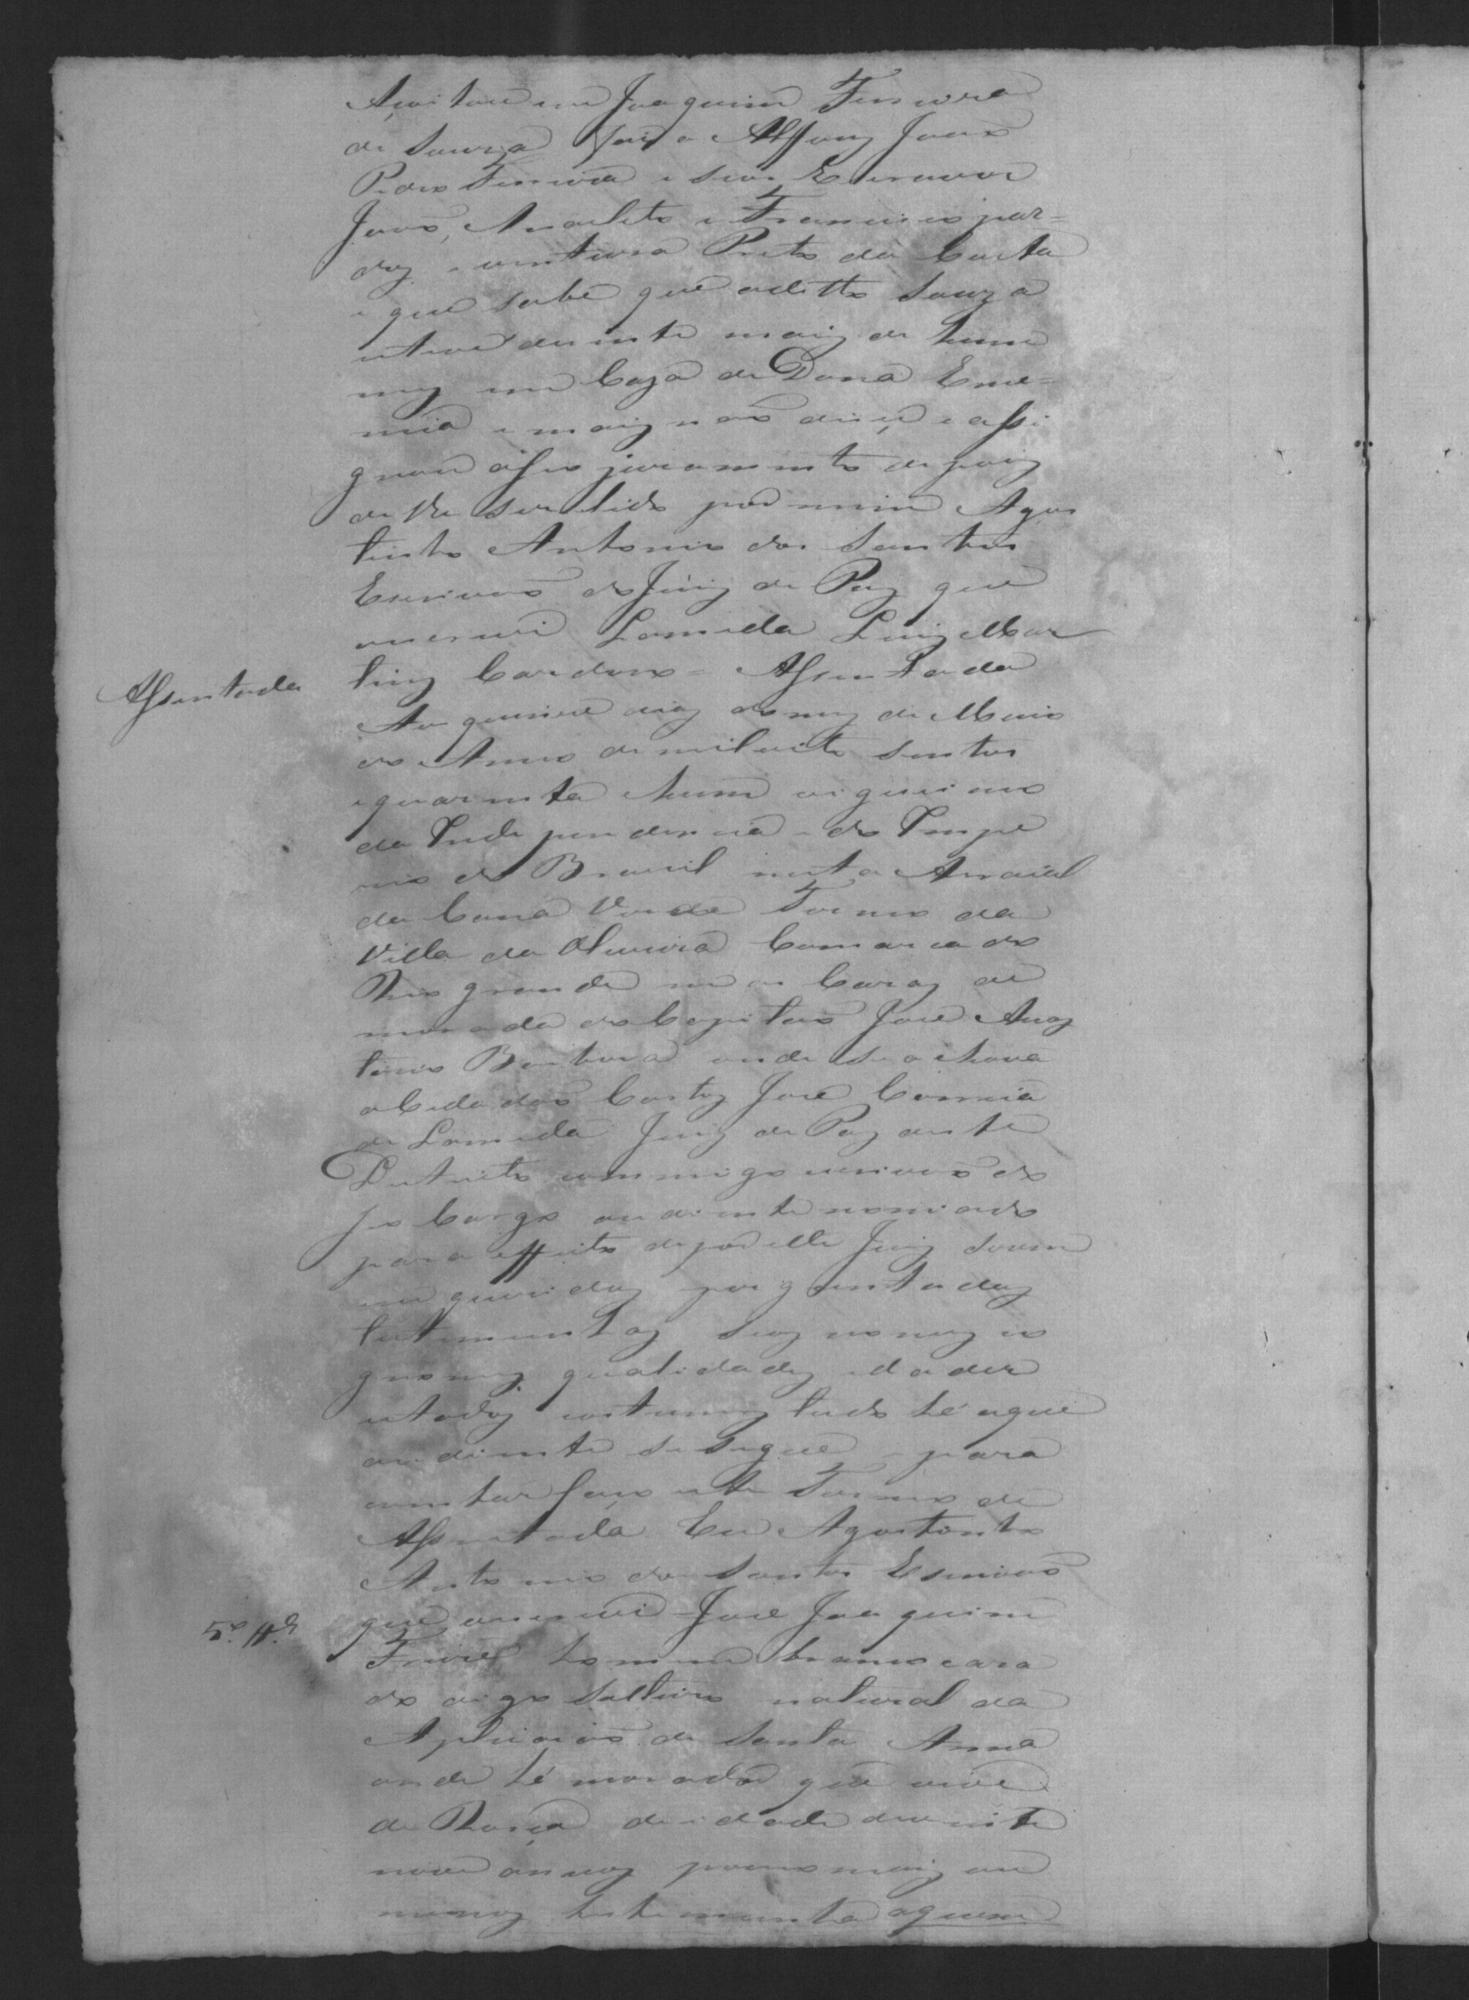 Açoitou em Joaquim Ferreira
de Souza Alferes João
Pedro Ferreira e seus Escravos
João, Anacleto e Francisco par=
dos e ventura Preto da Costa
e que sabe que o ditto Souza
esteve duente mais de hum
mez em Caza de Dona Eme=
mia e mais não disse e assi
gnou o seo juramento depois
de lhe ser lido por mim Agos
tinho Antonio dos Santos
Escrivaõ do Juiz de Paz que
o escrevi Lameda Luiz Mar
tins Cardozo = Assentada
Assentada
Aos quinze dias do mez de Maio
do Anno de mil oito sentos
e quarenta e hum vigesimo
da Independencia e do Impe
rio do Brazil nesta Arraial
da Cana Verde Termo da
Villa da Oliveira Comarca do
Rio grande em as Cazas de
morada do Capitaõ José Anas
tacio Barboza onde se achava
o Cidadaõ José Correia
de Lameda Juiz de Paz deste
Destricto commigo escrivaõ do
seo Cargo ao diante nomiado
para effeito de por elle Juiz serem
inqueridas e perguntadas
testemunhas seus nomes co
gnomes qualidades idades
estados costumes tudo hé o que
ao diante se segue e para
constar faço este Termo de
Assentada Eu Agostinho
Antonio dos Santos Escrivaõ
que o escrevi = José Joaquim
5.ª tt.ª
Freire homem branco caza
do digo solteiro natural da
Aplicaçaõ de Santa Anna
onde hé morador que vive
de Rossa de idade de vinte
nove annos pouco mais ou
menos testemunha a quem